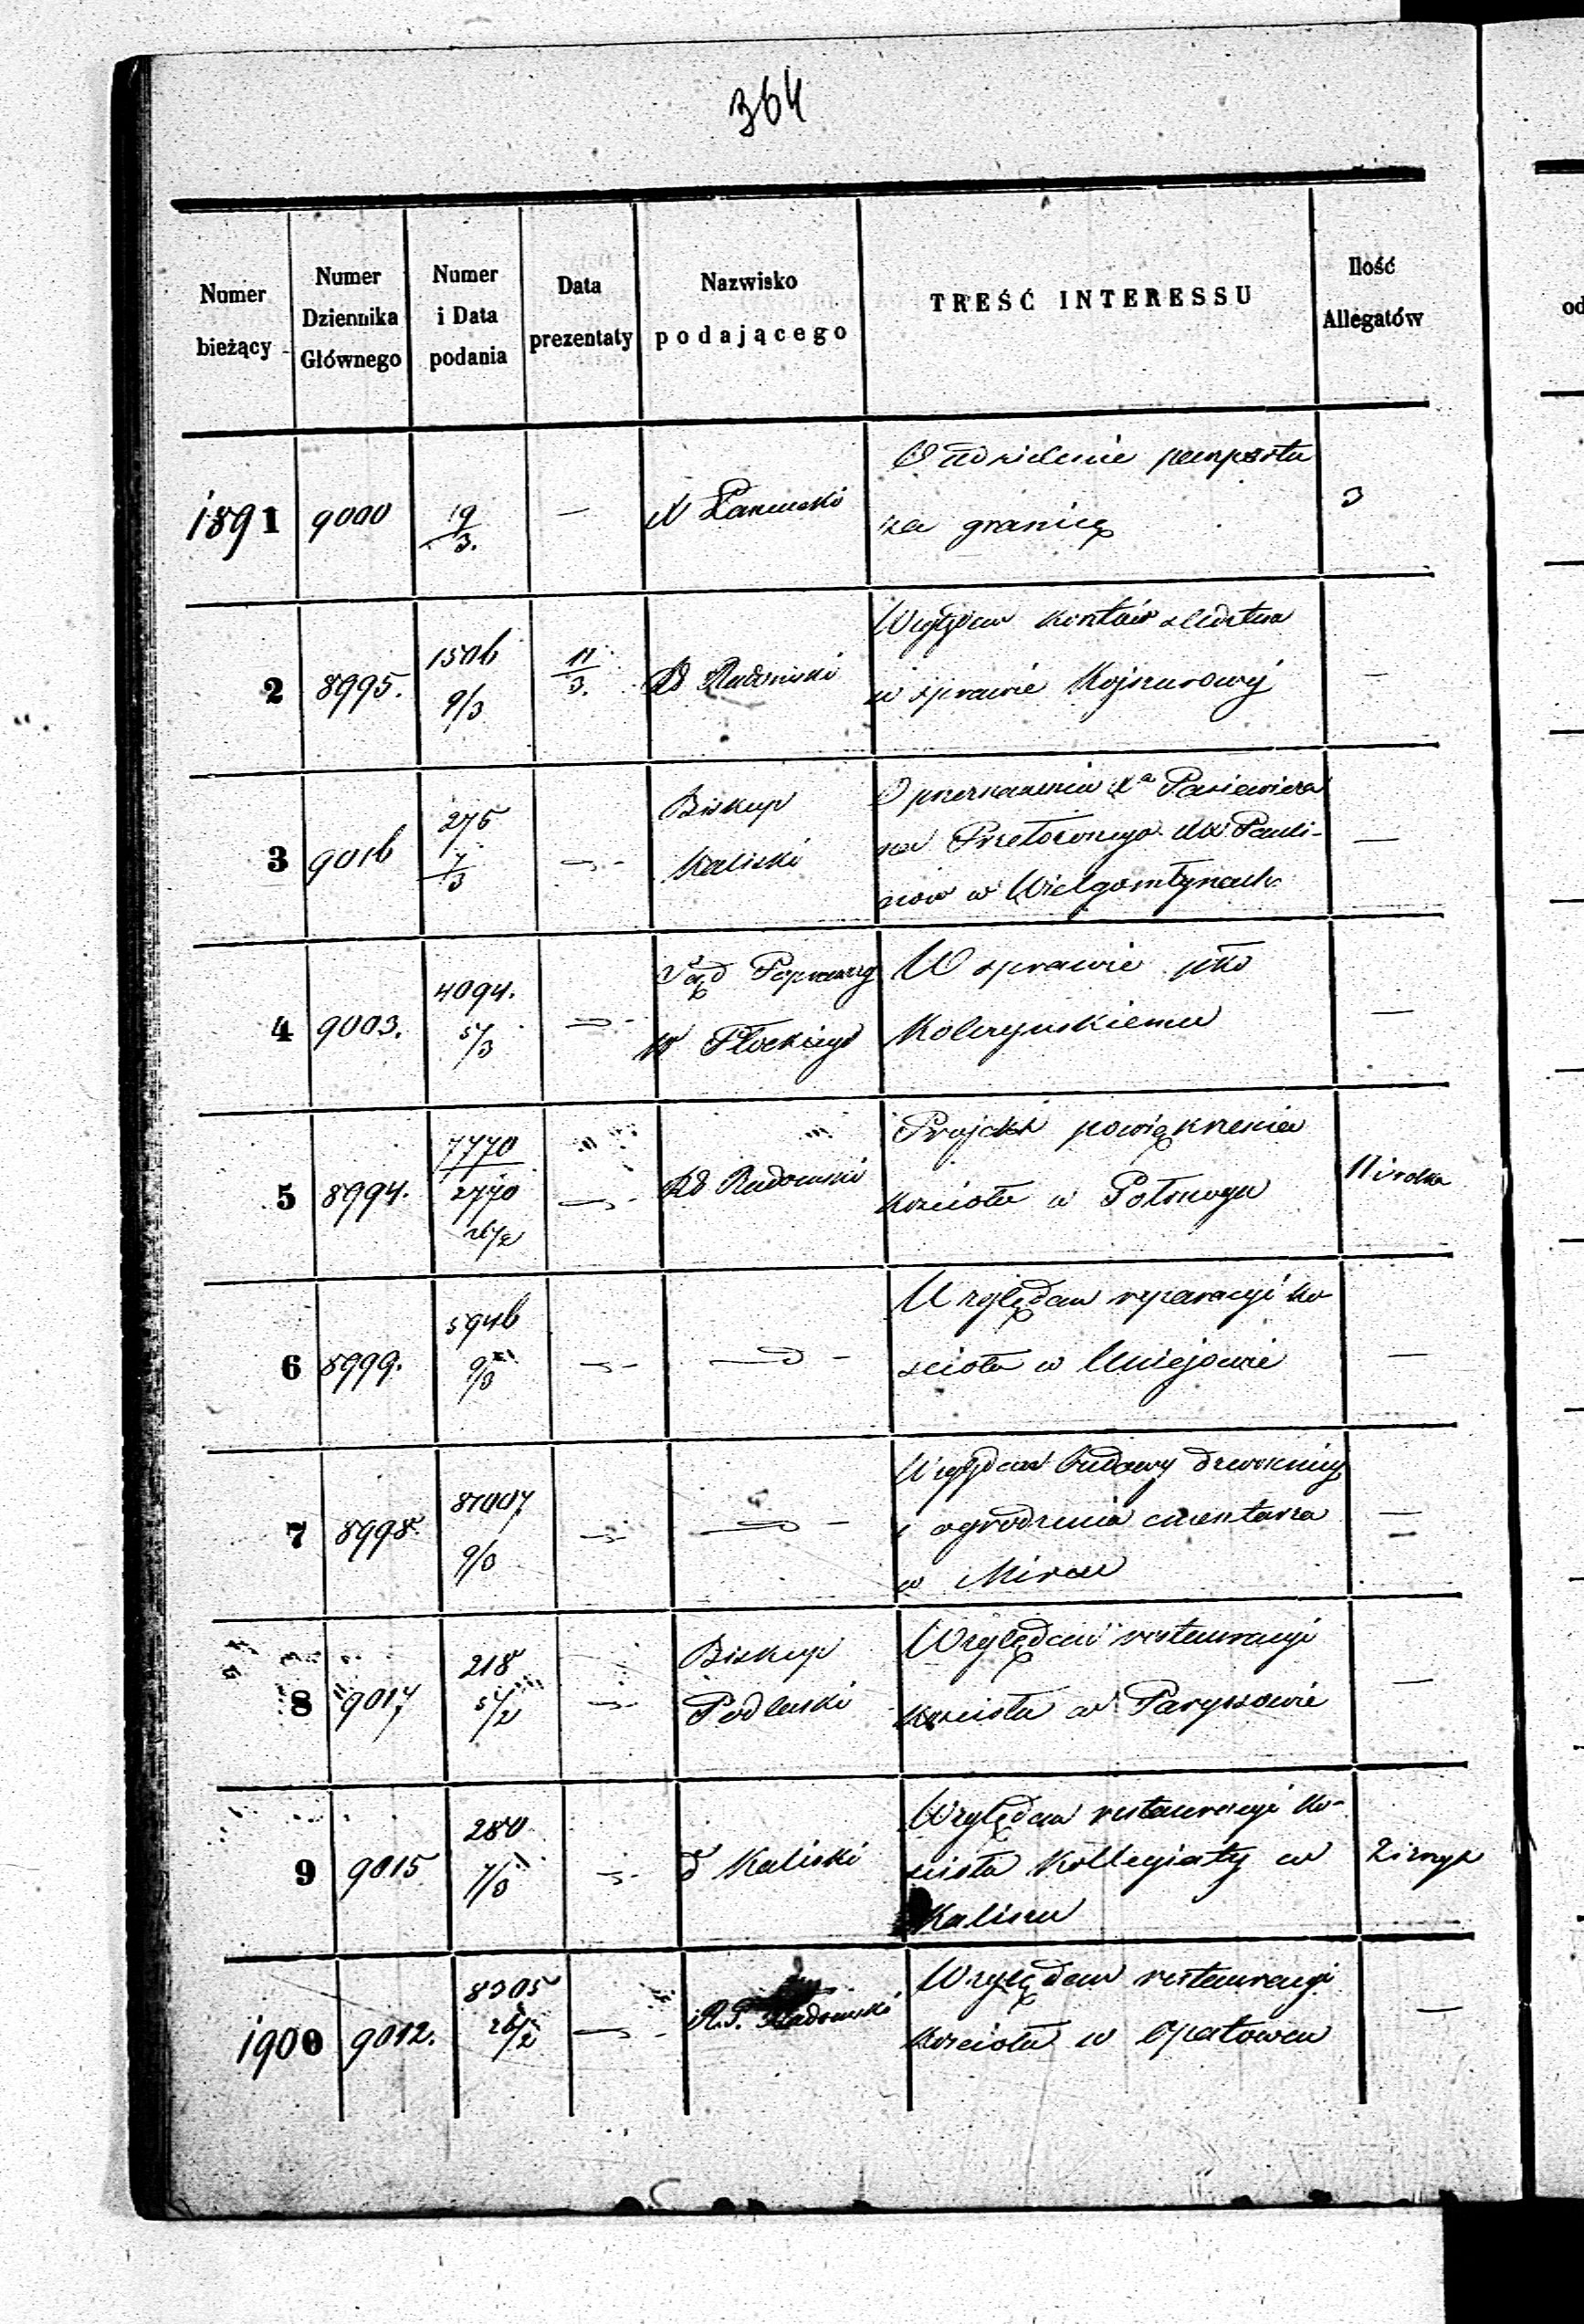 364
Numer bieżący
Numer Dziennika Głównego
Numer i Data podania
Data prezentaty
Nazwisko podającego
TREŚĆ INTERESSU
Ilość Allegatów
1891 9000 19/3. — O udzielenie paszportu 3
za granicę
2 8995. 1506 9/3 11/3. Rd Radomski Względem kosztów śledztwa —
w sprawie
3 9016 275 7/3 Biskup Kaliski O przeznaczeniu Xa Pasiewicza —
na Przełożonego XX Pauli-
nów w Wielgomłynach
4 9003. 4094. 5/3 Sąd Poprawczy W sprawie pko —
W Płockiego
5 8994. 7770/2770 26/2 Rd Radomski Projekt powiększenia
kościoła w
6 8999. 5946 9/3 Względem reparacyi ko- —
scioła w Uniejowie
7 8998 87007 9/3 Względem budowy dzwonnicy —
i ogrodzenia cmentarza
w Mircu
8 9017 218 5/2 Biskup Podlaski Względem restauracyi —
kościoła w Parysowie
9 9015 280 7/3 d Kaliski Względem restauracyi ko-
scioła Kollegiaty w
Kaliszu
1900 9012. 8305 26/2 R. G. Radomski Względem restauracyi —
kościoła w Opatowcu